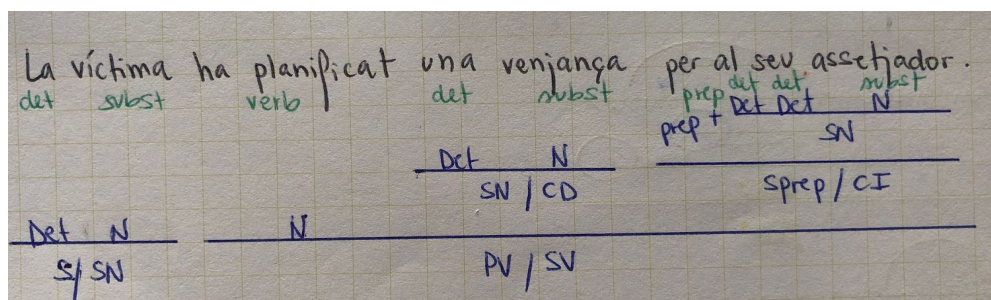 La víctima ha planificat una venjança per al seu assetjador.
det subst verb det subst prep det det subst
prep + Det Det N
SN
Det N
SN / CD
Sprep / CI
Det N N
S/ SN
PV / SV